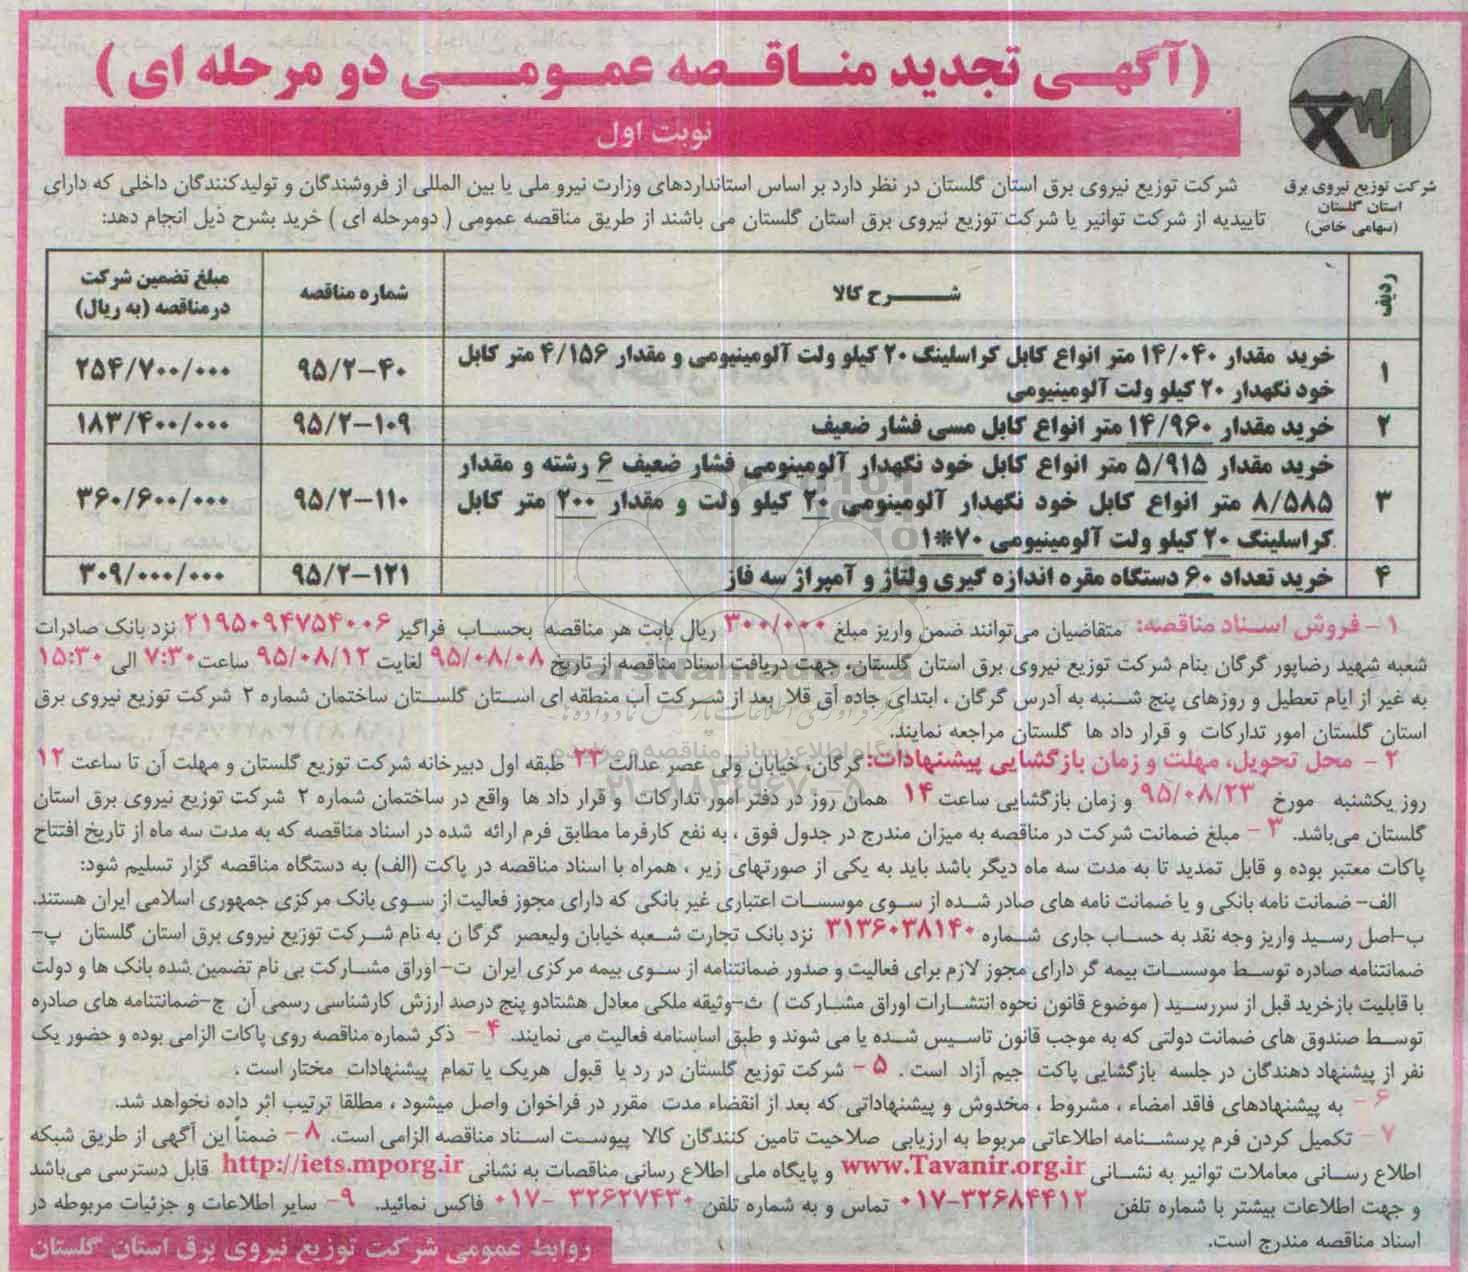 (آگهـی تجدید منـاقـصه عمـومـی دو مرحله ای)
نوبت اول
شرکت توزیع نیروی برق
استان گلستان
(سهامی خاص)
شرکت توزیع نیروی برق استان گلستان در نظر دارد بر اساس استانداردهای وزارت نیرو ملی یا بین المللی از فروشندگان و تولیدکنندگان داخلی که دارای
تاییدیه از شرکت توانیر یا شرکت توزیع نیروی برق استان گلستان می باشند از طریق مناقصه عمومی (دومرحله ای) خرید بشرح ذیل انجام دهد:
ردیف
شـــرح کالا
شماره مناقصه
مبلغ تضمین شرکت
درمناقصه (به ریال)
۱
خرید مقدار ۱۴/۰۴۰ متر انواع کابل کراسلینگ ۲۰ کیلو ولت آلومینیومی و مقدار ۴/۱۵۶ متر کابل
خود نگهدار ۲۰ کیلو ولت آلومینیومی
۹۵/۲-۴۰
۲۵۴/۷۰۰/۰۰۰
۲
خرید مقدار ۱۴/۹۶۰ متر انواع کابل مسی فشار ضعیف
۹۵/۲-۱۰۹
۱۸۳/۴۰۰/۰۰۰
۳
خرید مقدار ۵/۹۱۵ متر انواع کابل خود نگهدار آلومینومی فشار ضعیف ۶ رشته و مقدار
۸/۵۸۵ متر انواع کابل خود نگهدار آلومینومی ۲۰ کیلو ولت و مقدار ۲۰۰ متر کابل
کراسلینگ ۲۰ کیلو ولت آلومینیومی ۷۰*۱
۹۵/۲-۱۱۰
۳۶۰/۶۰۰/۰۰۰
۴
خرید تعداد ۶۰ دستگاه مقره اندازه گیری ولتاژ و آمپراژ سه فاز
۹۵/۲-۱۲۱
۳۰۹/۰۰۰/۰۰۰
۱ - فروش اسـناد مناقصه: متقاضیان می‌توانند ضمن واریز مبلغ ۳۰۰/۰۰۰ ریال بابت هر مناقصه بحساب فراگیر ۲۱۹۵۰۹۴۷۵۴۰۰۶ نزد بانک صادرات
شعبه شهید رضاپور گرگان بنام شرکت توزیع نیروی برق استان گلستان، جهت دریافت اسناد مناقصه از تاریخ ۹۵/۰۸/۰۸ لغایت ۹۵/۰۸/۱۲ ساعت ۷:۳۰ الی ۱۵:۳۰
به غیر از ایام تعطیل و روزهای پنج شنبه به آدرس گرگان ، ابتدای جاده آق قلا بعد از شرکت آب منطقه ای استان گلستان ساختمان شماره ۲ شرکت توزیع نیروی برق
استان گلستان امور تدارکات و قرار داد ها گلستان مراجعه نمایند.
۲ - محل تحویل، مهلت و زمان بازگشایی پیشنهادات: گرگان، خیابان ولی عصر عدالت ۲۳ طبقه اول دبیرخانه شرکت توزیع گلستان و مهلت آن تا ساعت ۱۲
روز یکشنبه مورخ ۹۵/۰۸/۲۳ و زمان بازگشایی ساعت ۱۴ همان روز در دفتر امور تدارکات و قرار داد ها واقع در ساختمان شماره ۲ شرکت توزیع نیروی برق استان
گلستان می‌باشد. ۳ - مبلغ ضمانت شرکت در مناقصه به میزان مندرج در جدول فوق ، به نفع کارفرما مطابق فرم ارائه شده در اسناد مناقصه که به مدت سه ماه از تاریخ افتتاح
پاکات معتبر بوده و قابل تمدید تا به مدت سه ماه دیگر باشد باید به یکی از صورتهای زیر ، همراه با اسناد مناقصه در پاکت (الف) به دستگاه مناقصه گزار تسلیم شود:
الف- ضمانت نامه بانکی و یا ضمانت نامه های صادر شده از سوی موسسات اعتباری غیر بانکی که دارای مجوز فعالیت از سوی بانک مرکزی جمهوری اسلامی ایران هستند.
ب-اصل رسید واریز وجه نقد به حساب جاری شماره ۳۱۳۶۰۳۸۱۴۰ نزد بانک تجارت شعبه خیابان ولیعصر گرگا ن به نام شرکت توزیع نیروی برق استان گلستان پ-
ضمانتنامه صادره توسط موسسات بیمه گر دارای مجوز لازم برای فعالیت و صدور ضمانتنامه از سوی بیمه مرکزی ایران ت- اوراق مشارکت بی نام تضمین شده بانک ها و دولت
با قابلیت بازخرید قبل از سررسید ( موضوع قانون نحوه انتشارات اوراق مشارکت ) ث-وثیقه ملکی معادل هشتادو پنج درصد ارزش کارشناسی رسمی آن ج-ضمانتنامه های صادره
توسط صندوق های ضمانت دولتی که به موجب قانون تاسیس شده یا می شوند و طبق اساسنامه فعالیت می نمایند. ۴ - ذکر شماره مناقصه روی پاکات الزامی بوده و حضور یک
نفر از پیشنهاد دهندگان در جلسه بازگشایی پاکت جیم آزاد است . ۵ - شرکت توزیع گلستان در رد یا قبول هریک یا تمام پیشنهادات مختار است .
۶ - به پیشنهادهای فاقد امضاء ، مشروط ، مخدوش و پیشنهاداتی که بعد از انقضاء مدت مقرر در فراخوان واصل میشود ، مطلقا ترتیب اثر داده نخواهد شد.
۷ - تکمیل کردن فرم پرسشنامه اطلاعاتی مربوط به ارزیابی صلاحیت تامین کنندگان کالا پیوست اسناد مناقصه الزامی است. ۸ - ضمناً این آگهی از طریق شبکه
اطلاع رسانی معاملات توانیر به نشانی www.Tavanir.org.ir و پایگاه ملی اطلاع رسانی مناقصات به نشانی http://iets.mporg.ir قابل دسترسی می‌باشد
و جهت اطلاعات بیشتر با شماره تلفن ۰۱۷-۳۲۶۸۴۴۱۲ تماس و به شماره تلفن ۳۲۶۲۷۴۳۰ -۰۱۷ فاکس نمائید. ۹- سایر اطلاعات و جزئیات مربوطه در
اسناد مناقصه مندرج است.
روابط عمومی شرکت توزیع نیروی برق استان گلستان
ParsNamadData
پایگاه اطلاع رسانی مناقصه و مزایده